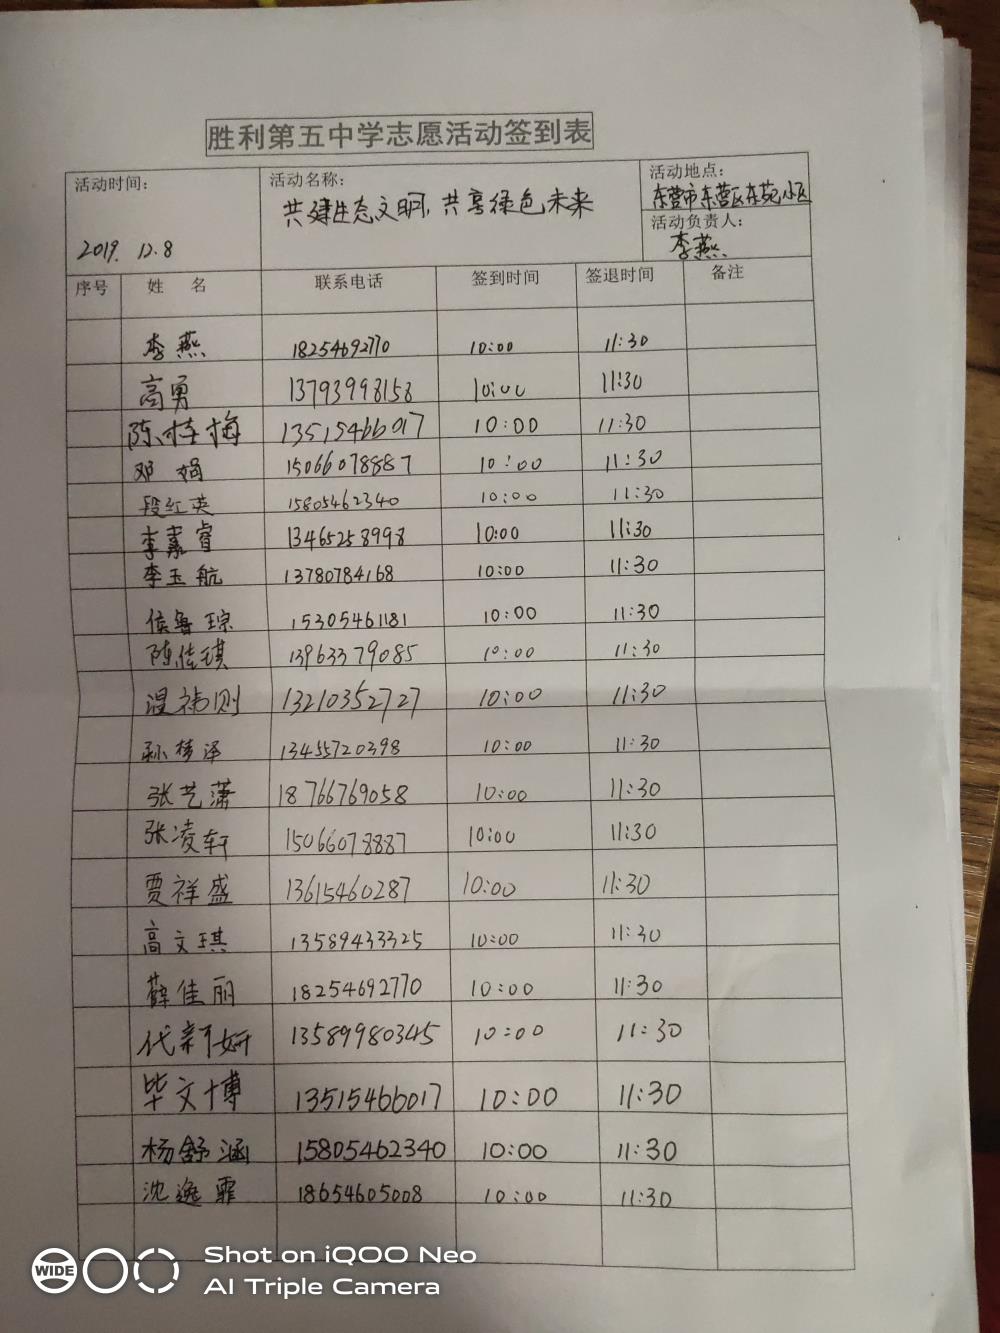 胜利第五中学志愿活动签到表
活动时间： 2019. 12.8
活动名称： 共建生态文明，共享绿色未来
活动地点： 东营市东营区东苑小区
活动负责人： 李燕
序号 姓 名 联系电话 签到时间 签退时间 备注
李燕 18254692770 10:00 11:30
高勇 13793998158 10:00 11:30
陈桂梅 13515466017 10:00 11:30
邓娟 15066078887 10:00 11:30
段红英 15805462340 10:00 11:30
李睿 13465258998 10:00 11:30
李玉航 13780784168 10:00 11:30
侯鲁琮 15305461181 10:00 11:30
陈佳琪 13963379085 10:00 11:30
则 13210352727 10:00 11:30
孙梦泽 13455720398 10:00 11:30
张艺潇 18766769058 10:00 11:30
张凌轩 15066078887 10:00 11:30
贾祥盛 13615460287 10:00 11:30
高文琪 13589433325 10:00 11:30
薛佳丽 18254692770 10:00 11:30
代新妍 13589980345 10:00 11:30
毕文博 13515466017 10:00 11:30
杨舒涵 15805462340 10:00 11:30
沈逸霏 18654605008 10:00 11:30
WIDE
Shot on iQOO Neo
AI Triple Camera